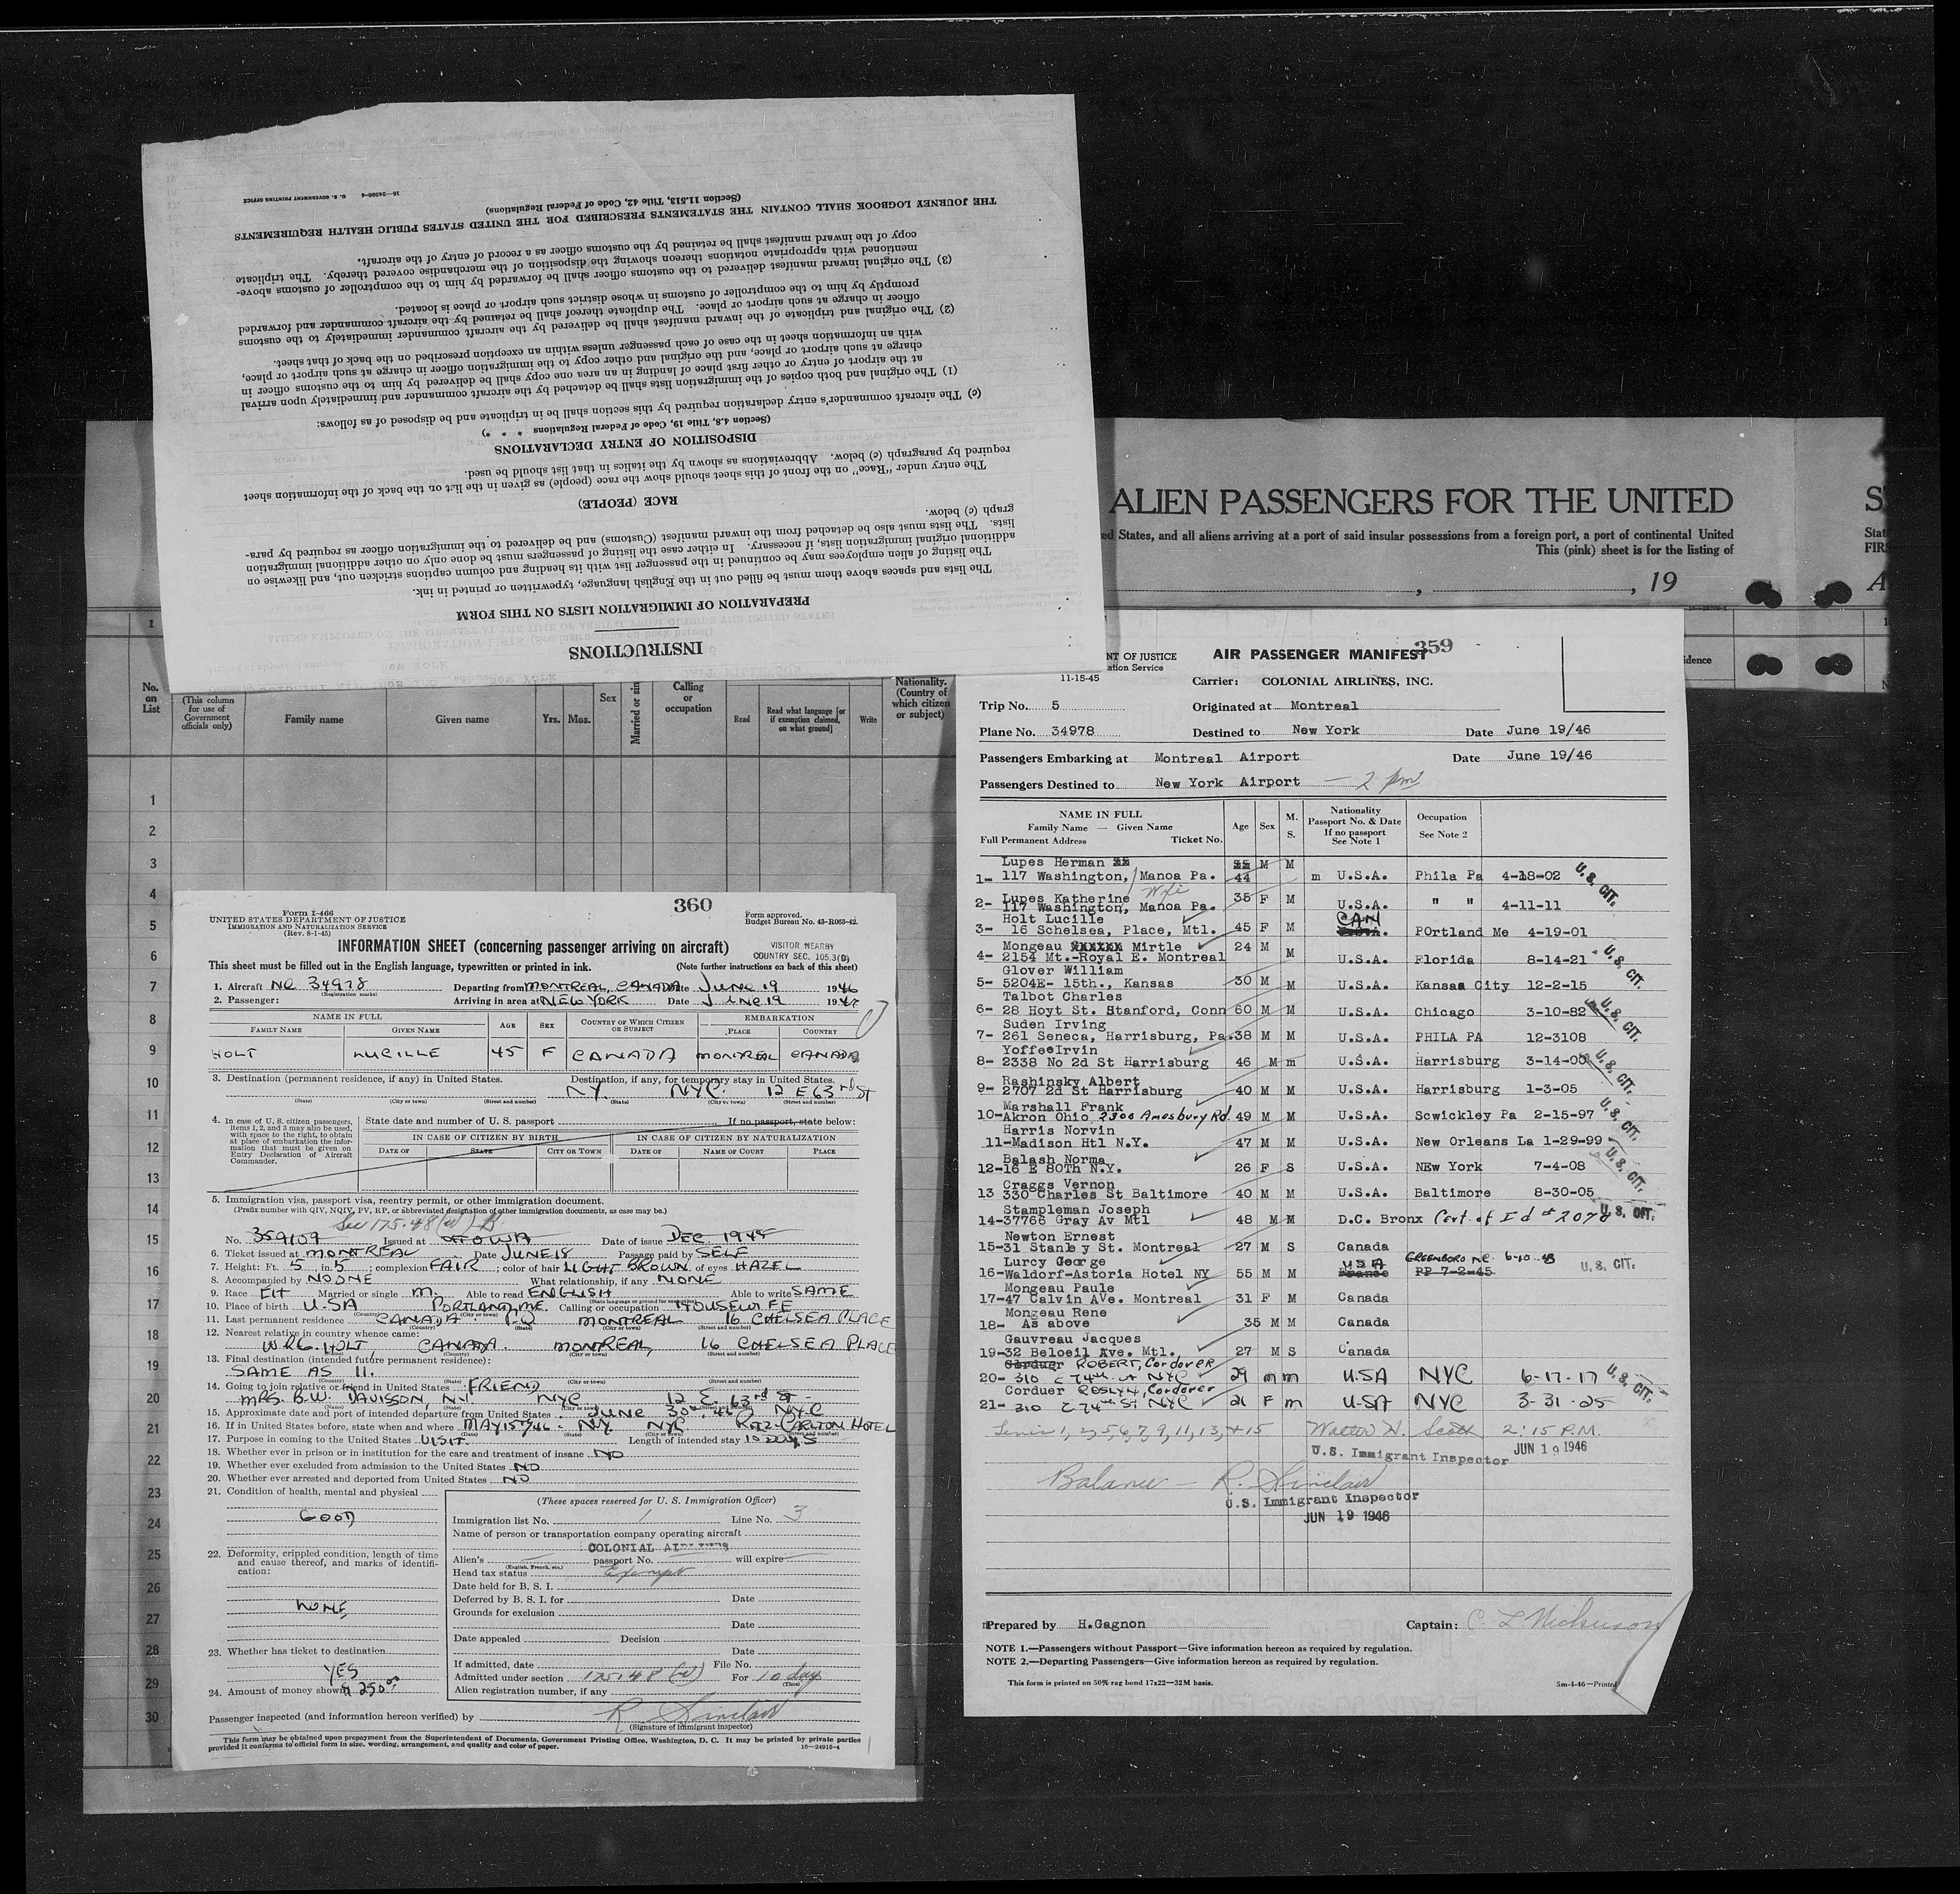 INSTRUCTIONS
PREPARATION OF IMMIGRATION LISTS ON THIS FORM
The lists and spaces above them must be filled out in the English language, typewritten or printed in ink.
The listing of alien employees may be continued in the passenger list with its heading and column captions stricken out, and likewise on
additional original immigration lists, if necessary. In either case the listing of passengers must be done only on other additional immigration
lists. The lists must also be detached from the inward manifest (Customs) and be delivered to the immigration officer as required by para-
graph (c) below.
RACE (PEOPLE)
The entry under "Race" on the front of this sheet should show the race (people) as given in the list on the back of the information sheet
required by paragraph (c) below. Abbreviations as shown by the italics in that list should be used.
DISPOSITION OF ENTRY DECLARATIONS
(Section 4.8, Title 19, Code of Federal Regulations * * *)
(c) The aircraft commander's entry declaration required by this section shall be in triplicate and be disposed of as follows:
(1) The original and both copies of the immigration lists shall be detached by the aircraft commander and immediately upon arrival
at the airport of entry or other first place of landing in an area one copy shall be delivered by him to the customs officer in
charge at such airport or place, and the original and other copy to the immigration officer in charge at such airport or place,
with an information sheet in the case of each passenger unless within an exception prescribed on the back of that sheet.
(2) The original and triplicate of the inward manifest shall be delivered by the aircraft commander immediately to the customs
officer in charge at such airport or place. The duplicate thereof shall be retained by the aircraft commander and forwarded
promptly by him to the comptroller of customs in whose district such airport or place is located.
(3) The original inward manifest delivered to the customs officer shall be forwarded by him to the comptroller of customs above-
mentioned with appropriate notations thereon showing the disposition of the merchandise covered thereby. The triplicate
copy of the inward manifest shall be retained by the customs officer as a record of entry of the aircraft.
THE JOURNEY LOGBOOK SHALL CONTAIN THE STATEMENTS PRESCRIBED FOR THE UNITED STATES PUBLIC HEALTH REQUIREMENTS
(Section 11.513, Title 42, Code of Federal Regulations)
16—24598-4 U. S. GOVERNMENT PRINTING OFFICE
ALIEN PASSENGERS FOR THE UNITED
ed States, and all aliens arriving at a port of said insular possessions from a foreign port, a port of continental United
This (pink) sheet is for the listing of
, 19
No. on List
(This column for use of Government officials only)
Family name Given name Yrs. Mos. Sex Married or sin
Calling or occupation
Read
Read what language [or if exemption claimed, on what ground]
Write
Nationality. (Country of which citizen or subject)
1
1
2
3
4
5
6
7
8
9
10
11
12
13
14
15
16
17
18
19
20
21
22
23
24
25
26
27
28
29
30
360
Form I-466
UNITED STATES DEPARTMENT OF JUSTICE
IMMIGRATION AND NATURALIZATION SERVICE
(Rev. 8-1-45)
Form approved.
Budget Bureau No. 43-R063-42.
INFORMATION SHEET (concerning passenger arriving on aircraft)
VISITOR NEARBY
COUNTRY SEC. 105.3(D)
This sheet must be filled out in the English language, typewritten or printed in ink. (Note further instructions on back of this sheet)
1. Aircraft NC 34978 Departing from MONTREAL, CANADA Date JUNE 19 1946
(Registration marks)
2. Passenger: Arriving in area at NEW YORK Date JUNE 19 1946
NAME IN FULL AGE SEX COUNTRY OF WHICH CITIZEN OR SUBJECT EMBARKATION
FAMILY NAME GIVEN NAME PLACE COUNTRY
HOLT LUCILLE 45 F CANADA MONTREAL CANADA
3. Destination (permanent residence, if any) in United States. Destination, if any, for temporary stay in United States.
N.Y. NYC. 12 E 63rd St
(State) (City or town) (Street and number) (State) (City or town) (Street and number)
4. In case of U. S. citizen passengers, items 1, 2, and 3 may also be used, with space to the right, to obtain at place of embarkation the information that must be given on Entry Declaration of Aircraft Commander.
State date and number of U. S. passport If no passport, state below:
IN CASE OF CITIZEN BY BIRTH IN CASE OF CITIZEN BY NATURALIZATION
DATE OF STATE CITY OR TOWN DATE OF NAME OF COURT PLACE
5. Immigration visa, passport visa, reentry permit, or other immigration document.
(Prefix number with QIV, NQIV, PV, RP, or abbreviated designation of other immigration documents, as case may be.)
Sec 175.48(d)
No. 359109 Issued at OTTOWA Date of issue DEC 1945
6. Ticket issued at MONTREAL Date JUNE 18 Passage paid by SELF
7. Height: Ft. 5, in. 5; complexion FAIR; color of hair LIGHT BROWN, of eyes HAZEL
8. Accompanied by NO ONE What relationship, if any NONE
9. Race Married or single M. Able to read ENGLISH Able to write SAME
10. Place of birth U.S.A PORTLAND, ME. Calling or occupation HOUSEWIFE
11. Last permanent residence CANADA P.Q MONTREAL 16 CHELSEA PLACE
12. Nearest relative in country whence came:
HOLT, CANADA. MONTREAL, 16 CHELSEA PLACE
13. Final destination (intended future permanent residence):
SAME AS 11.
14. Going to join relative or friend in United States FRIEND
MRS. B.W. DAVISON, N.Y. NYC 12 E. 63rd St -
15. Approximate date and port of intended departure from United States JUNE 30th, 46 NYC
16. If in United States before, state when and where MAY 15th/46 N.Y. NYC. RITZ-CARLTON HOTEL
17. Purpose in coming to the United States VISIT. Length of intended stay 10 DAYS
18. Whether ever in prison or in institution for the care and treatment of insane NO
19. Whether ever excluded from admission to the United States NO
20. Whether ever arrested and deported from United States NO
21. Condition of health, mental and physical
GOOD
22. Deformity, crippled condition, length of time and cause thereof, and marks of identification:
NONE
23. Whether has ticket to destination
YES
24. Amount of money shown $ 250.00
(These spaces reserved for U. S. Immigration Officer)
Immigration list No. 1 Line No. 3
Name of person or transportation company operating aircraft
COLONIAL AIRLINES
Alien's passport No. will expire
(English, French, etc.)
Head tax status Exempt
Date held for B. S. I.
Deferred by B. S. I. for Date
Grounds for exclusion
Date
Date appealed Decision
Date
If admitted, date File No.
Admitted under section 175.48(d) For 10 days
(Time)
Alien registration number, if any
Passenger inspected (and information hereon verified) by R Sinclair
(Signature of immigrant inspector)
This form may be obtained upon prepayment from the Superintendent of Documents, Government Printing Office, Washington, D. C. It may be printed by private parties
provided it conforms to official form in size, wording, arrangement, and quality and color of paper. 16—24915-4
NT OF JUSTICE
ation Service
11-15-45
AIR PASSENGER MANIFEST
359
Carrier: COLONIAL AIRLINES, INC.
Trip No. 5 Originated at Montreal
Plane No. 34978 Destined to New York Date June 19/46
Passengers Embarking at Montreal Airport Date June 19/46
Passengers Destined to New York Airport — 2 pm
NAME IN FULL
Family Name — Given Name
Full Permanent Address Ticket No.
Age Sex M. S.
Nationality Passport No. & Date If no passport See Note 1
Occupation See Note 2
Lupes Herman 35 M M
1- 117 Washington, Manoa Pa. 44 m U.S.A. Phila Pa 4-18-02 U.S. CIT.
Lupes Katherine Wife 35 F M
2- 117 Washington, Manoa Pa. U.S.A. " " 4-11-11
Holt Lucille CAN
3- 16 Schelsea, Place, Mtl. 45 F M POrtland Me 4-19-01
Mongeau Mirtle 24 M
4- 2154 Mt.-Royal E. Montreal M U.S.A. Florida 8-14-21 U.S. CIT.
Glover William
5- 5204E- 15th., Kansas 30 M M U.S.A. Kansas City 12-2-15
Talbot Charles
6- 28 Hoyt St. Stanford, Conn 60 M M U.S.A. Chicago 3-10-82 U.S. CIT.
Suden Irving
7- 261 Seneca, Harrisburg, Pa. 38 M M U.S.A. PHILA PA 12-3108
YoffeeIrvin
8- 2338 No 2d St Harrisburg 46 M m U.S.A. Harrisburg 3-14-00 U.S. CIT.
Rashinsky Albert
9- 2707 2d St Harrisburg 40 M M U.S.A. Harrisburg 1-3-05
Marshall Frank
10-Akron Ohio 2300 Amesbury Rd. 49 M M U.S.A. Scwickley Pa 2-15-97 U.S. CIT.
Harris Norvin
11-Madison Htl N.Y. 47 M M U.S.A. New Orleans La 1-29-99
Balash Norma
12-16 E 80Th N.Y. 26 F S U.S.A. NEw York 7-4-08 U.S. CIT.
Craggs Vernon
13 330 Charles St Baltimore 40 M M U.S.A. Baltimore 8-30-05
Stampleman Joseph
14-37766 Gray Av Mtl 48 M M D.C. Bronx Cert. of Id # 2070 U.S. CIT.
Newton Ernest
15-31 Stanley St. Montreal 27 M S Canada
Lurcy George USA GREENBORO NC. 6-10-
16-Waldorf-Astoria Hotel NY 55 M M France PP 7-2-45 U.S. CIT.
Mongeau Paule
17-47 Calvin AVe. Montreal 31 F M Canada
Mongeau Rene
18- As above 35 M M Canada
Gauvreau Jacques
19-32 Beloeil Ave. Mtl. 27 M S Canada
Corduer ROBERT, Cordover
20- 310 E 74th St NYC 29 m m USA NYC 6-17-17 U.S. CIT.
Corduer ROSLYN, Cordover
21- 310 E 74th St NYC 21 F m USA NYC 3-31-25
Lines 1, 2, 5, 6, 7, 9, 11, 13, + 15 Walter H. Scott 2:15 P.M.
U.S. Immigrant Inspector JUN 19 1946
Balance — R. Sinclair
U.S. Immigrant Inspector
JUN 19 1946
Prepared by H.Gagnon Captain: C L Nickerson
NOTE 1.—Passengers without Passport—Give information hereon as required by regulation.
NOTE 2.—Departing Passengers—Give information hereon as required by regulation.
This form is printed on 50% rag bond 17x22—32M basis. 5m-4-46—Printed